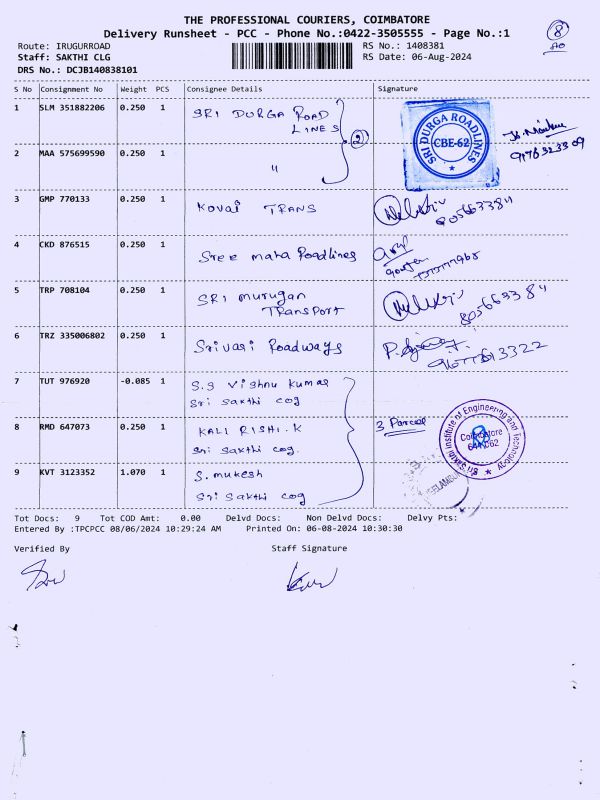 THE PROFESSIONAL COURIERS, COIMBATORE
Delivery Runsheet - PCC - Phone No.:0422-3505555 - Page No.:1
8
Route: IRUGURROAD
RS No.: 1408381
Staff: SAKTHI CLG
RS Date: 06-Aug-2024
DRS No.: DCJB140838101
S No Consignment No Weight PCS Consignee Details Signature
1 SLM 351882206 0.250 1 SRI DURGA ROAD LINES
2
SRI DURGA ROADLINES
CBE-62
2 MAA 575699590 0.250 1 "
3 GMP 770133 0.250 1 KOVAI TRANS
4 CKD 876515 0.250 1 Sree maha Roadlines
5 TRP 708104 0.250 1 SRI murugan TRANSPORT
6 TRZ 335006802 0.250 1 Srivari Roadways
7 TUT 976920 -0.085 1 S.S Vishnu Kumar
Sri Sakthi cog
8 RMD 647073 0.250 1 KALI RISHI.K
Sri Sakthi cog.
3 Parcel
Sri Sakthi Institute of Engineering and Technology
Coimbatore
641 062
9 KVT 3123352 1.070 1 S. mukesh
Sri Sakthi cog
Tot Docs: 9 Tot COD Amt: 0.00 Delvd Docs: Non Delvd Docs: Delvy Pts:
Entered By :TPCPCC 08/06/2024 10:29:24 AM Printed On: 06-08-2024 10:30:30
Verified By Staff Signature